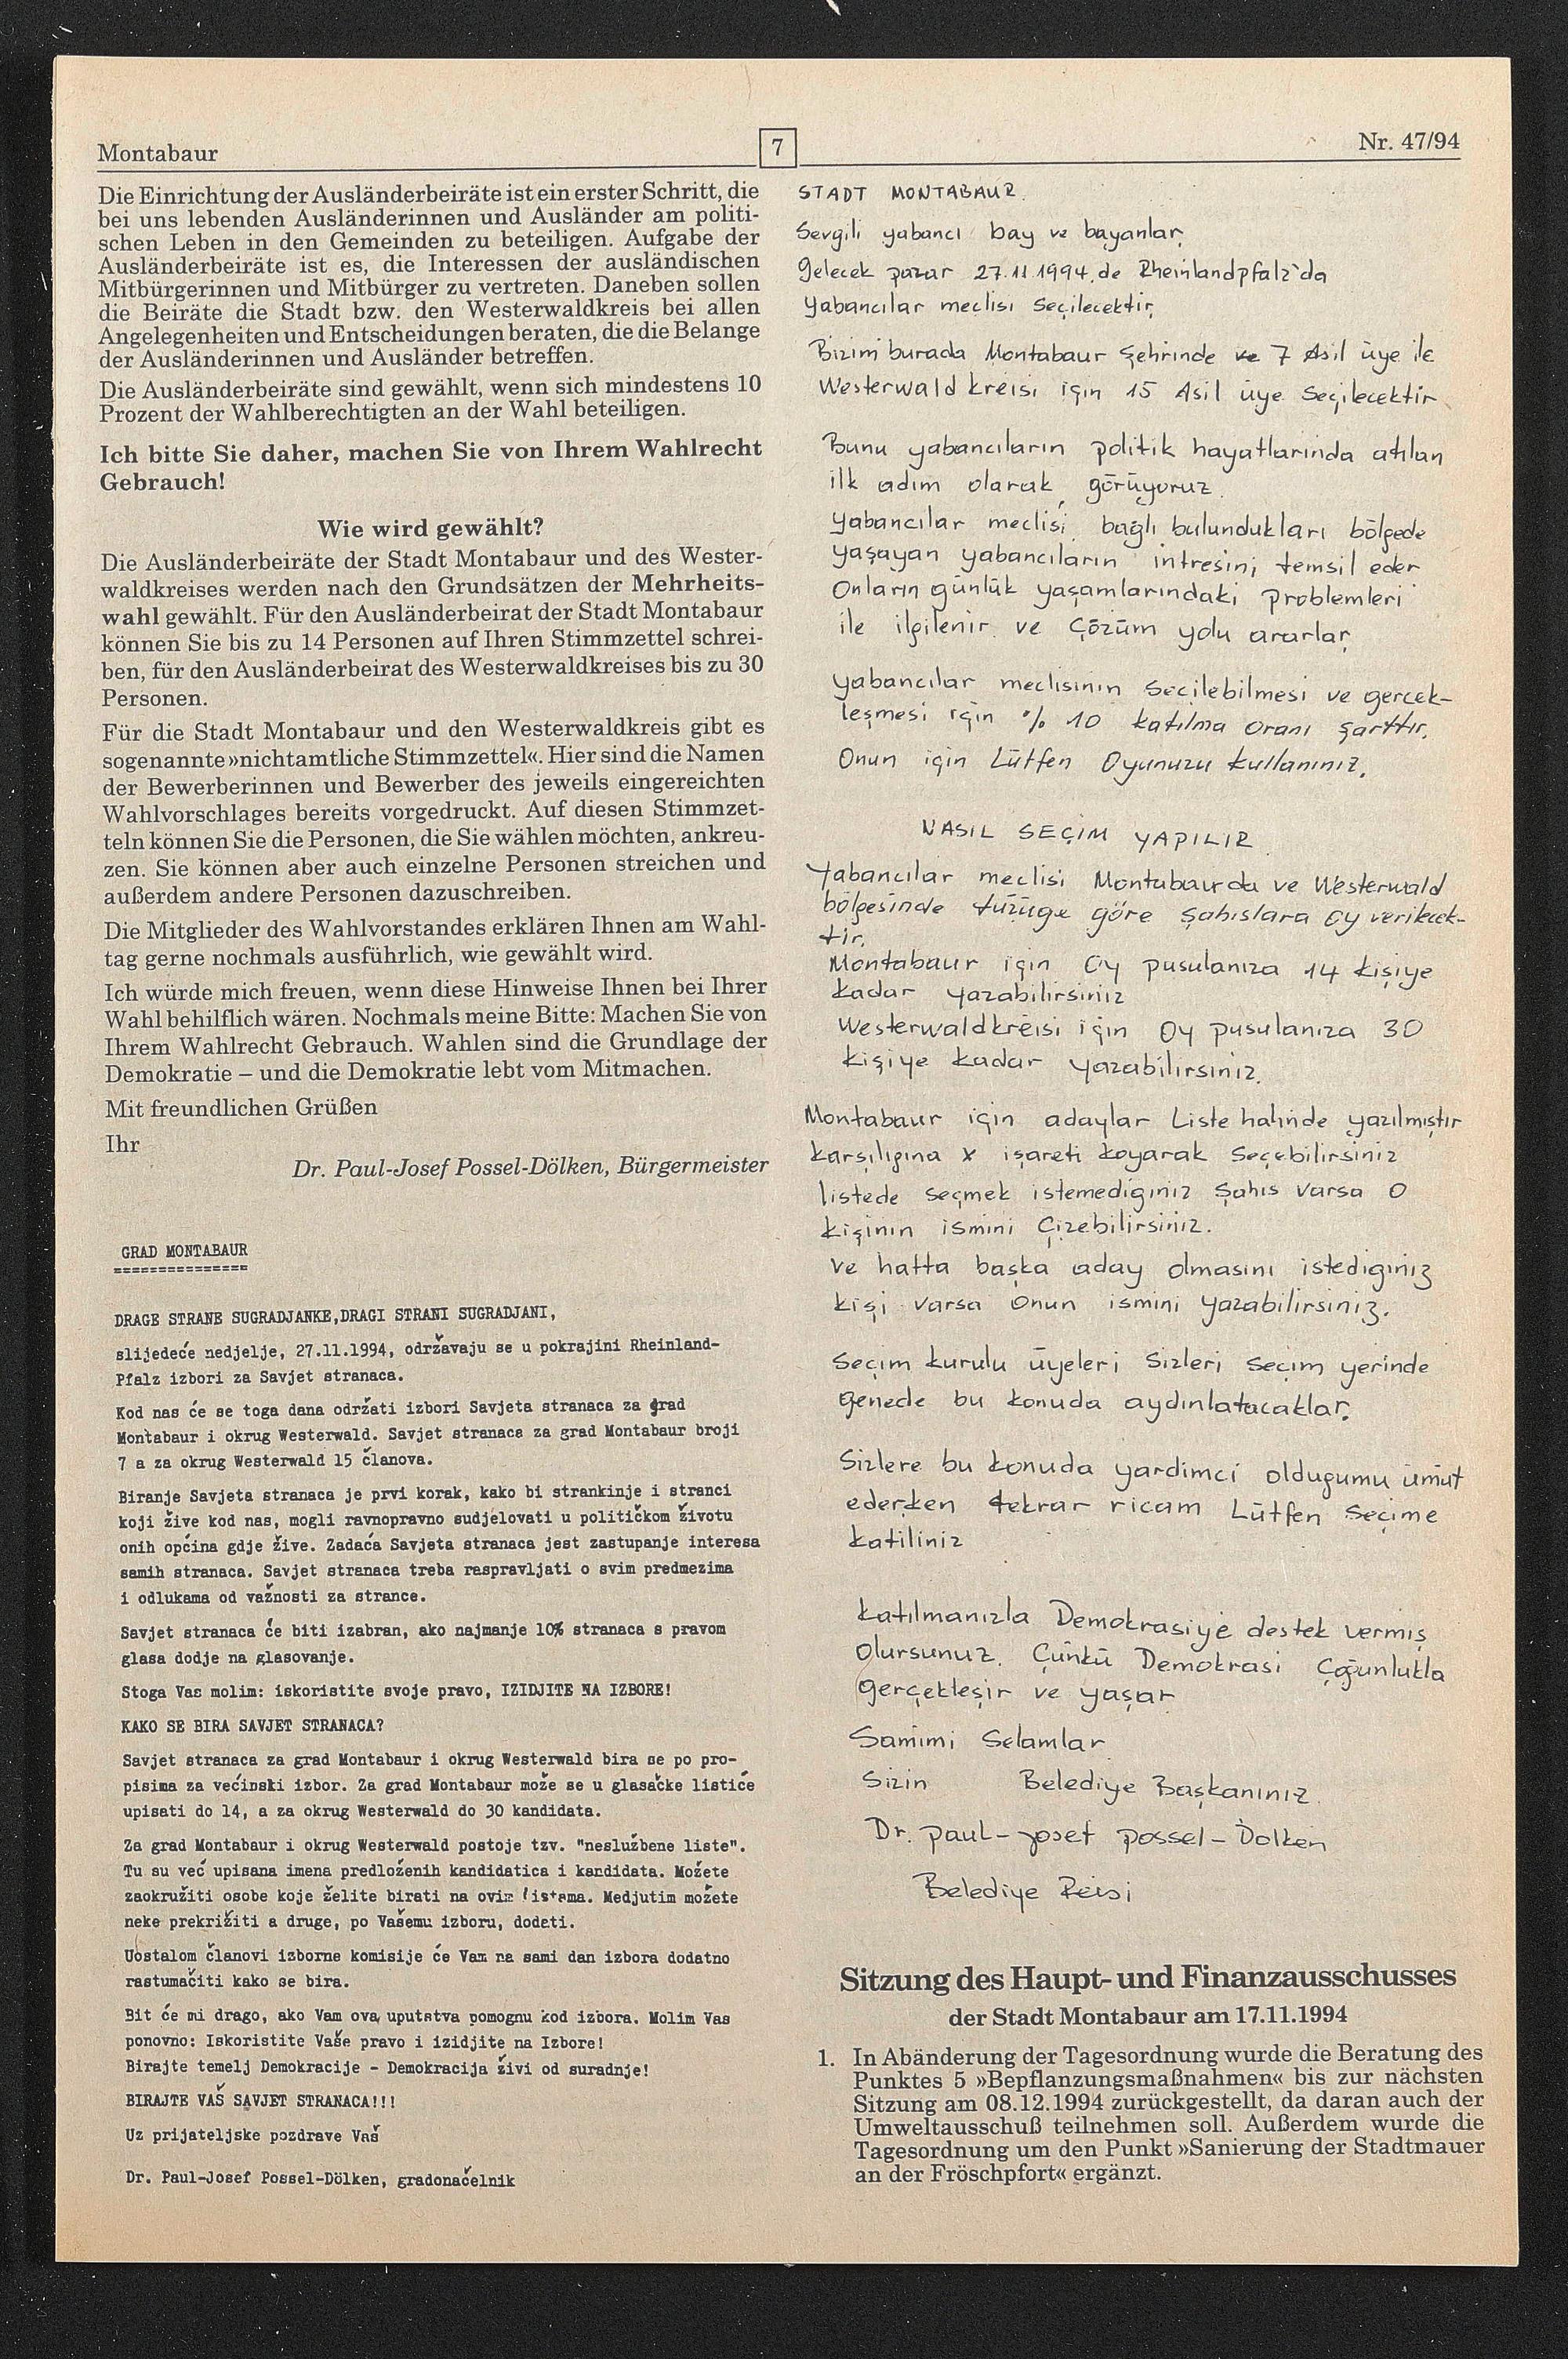 Montabaur
7
Nr. 47/94
Die Einrichtung der Ausländerbeiräte ist ein erster Schritt, die
bei uns lebenden Ausländerinnen und Ausländer am politi-
schen Leben in den Gemeinden zu beteiligen. Aufgabe der
Ausländerbeiräte ist es, die Interessen der ausländischen
Mitbürgerinnen und Mitbürger zu vertreten. Daneben sollen
die Beiräte die Stadt bzw. den Westerwaldkreis bei allen
Angelegenheiten und Entscheidungen beraten, die die Belange
der Ausländerinnen und Ausländer betreffen.
Die Ausländerbeiräte sind gewählt, wenn sich mindestens 10
Prozent der Wahlberechtigten an der Wahl beteiligen.
Ich bitte Sie daher, machen Sie von Ihrem Wahlrecht
Gebrauch!
Wie wird gewählt?
Die Ausländerbeiräte der Stadt Montabaur und des Wester-
waldkreises werden nach den Grundsätzen der Mehrheits-
wahl gewählt. Für den Ausländerbeirat der Stadt Montabaur
können Sie bis zu 14 Personen auf Ihren Stimmzettel schrei-
ben, für den Ausländerbeirat des Westerwaldkreises bis zu 30
Personen.
Für die Stadt Montabaur und den Westerwaldkreis gibt es
sogenannte »nichtamtliche Stimmzettel«. Hier sind die Namen
der Bewerberinnen und Bewerber des jeweils eingereichten
Wahlvorschlages bereits vorgedruckt. Auf diesen Stimmzet-
teln können Sie die Personen, die Sie wählen möchten, ankreu-
zen. Sie können aber auch einzelne Personen streichen und
außerdem andere Personen dazuschreiben.
Die Mitglieder des Wahlvorstandes erklären Ihnen am Wahl-
tag gerne nochmals ausführlich, wie gewählt wird.
Ich würde mich freuen, wenn diese Hinweise Ihnen bei Ihrer
Wahl behilflich wären. Nochmals meine Bitte: Machen Sie von
Ihrem Wahlrecht Gebrauch. Wahlen sind die Grundlage der
Demokratie – und die Demokratie lebt vom Mitmachen.
Mit freundlichen Grüßen
Ihr
Dr. Paul-Josef Possel-Dölken, Bürgermeister
GRAD MONTABAUR
===============
DRAGE STRANE SUGRADJANKE,DRAGI STRANI SUGRADJANI,
slijedeće nedjelje, 27.11.1994, održavaju se u pokrajini Rheinland-
Pfalz izbori za Savjet stranaca.
Kod nas će se toga dana održati izbori Savjeta stranaca za grad
Montabaur i okrug Westerwald. Savjet stranaca za grad Montabaur broji
7 a za okrug Westerwald 15 članova.
Biranje Savjeta stranaca je prvi korak, kako bi strankinje i stranci
koji žive kod nas, mogli ravnopravno sudjelovati u političkom životu
onih općina gdje žive. Zadaća Savjeta stranaca jest zastupanje interesa
samih stranaca. Savjet stranaca treba raspravljati o svim predmezima
i odlukama od važnosti za strance.
Savjet stranaca će biti izabran, ako najmanje 10% stranaca s pravom
glasa dodje na glasovanje.
Stoga Vas molim: iskoristite svoje pravo, IZIDJITE NA IZBORE!
KAKO SE BIRA SAVJET STRANACA?
Savjet stranaca za grad Montabaur i okrug Westerwald bira se po pro-
pisima za većinski izbor. Za grad Montabaur može se u glasačke listiće
upisati do 14, a za okrug Westerwald do 30 kandidata.
Za grad Montabaur i okrug Westerwald postoje tzv. "neslužbene liste".
Tu su već upisana imena predloženih kandidatica i kandidata. Možete
zaokružiti osobe koje želite birati na ovim listama. Medjutim možete
neke prekrižiti a druge, po Vašemu izboru, dodati.
Uostalom članovi izborne komisije će Vam na sami dan izbora dodatno
rastumačiti kako se bira.
Bit će mi drago, ako Vam ova uputstva pomognu kod izbora. Molim Vas
ponovno: Iskoristite Vaše pravo i izidjite na Izbore!
Birajte temelj Demokracije - Demokracija živi od suradnje!
BIRAJTE VAŠ SAVJET STRANACA!!!
Uz prijateljske pozdrave Vaš
Dr. Paul-Josef Possel-Dölken, gradonačelnik
STADT MONTABAUR.
Sevgili yabancı bay ve bayanlar,
Gelecek pazar 27.11.1994.de Rheinlandpfalz'da
Yabancılar meclisi Seçilecektir,
Bizim burada Montabaur şehrinde ve 7 Asil üye ile
Westerwald kreisi için 15 Asil üye Seçilecektir.
Bunu yabancıların politik hayatlarında atılan
ilk adım olarak görüyoruz.
Yabancılar meclisi, bağlı bulundukları bölgede
yaşayan yabancıların intresini temsil eder
Onların günlük yaşamlarındaki problemleri
ile ilgilenir ve Çözüm yolu ararlar,
Yabancılar meclisinin Seçilebilmesi ve gercek-
leşmesi için % 10 katılma oranı şarttır,
Onun için Lütfen Oyunuzu kullanınız,
NASIL SEÇİM YAPILIR.
Yabancılar meclisi Montabaurda ve Westerwald
bölgesinde tüzüge göre şahıslara oy verilecek-
tir,
Montabaur için Oy pusulanıza 14 kişiye
kadar yazabilirsiniz
Westerwaldkreisi için Oy pusulanıza 30
kişiye kadar yazabilirsiniz.
Montabaur için adaylar Liste halinde yazılmıştır
karşılıgına x işareti koyarak Seçebilirsiniz
listede seçmek istemediginiz şahıs varsa O
kişinin ismini Çizebilirsiniz.
Ve hatta başka aday olmasını istediginiz
kişi varsa Onun ismini yazabilirsiniz.
Seçim kurulu üyeleri Sizleri seçim yerinde
Genede bu konuda aydınlatacaklar.
Sizlere bu konuda yardimci oldugumu ümüt
ederken tekrar ricam Lütfen Seçime
katiliniz
Katılmanızla Demokrasiye destek vermiş
Olursunuz. Çünkü Demokrasi Çoğunlukla
Gerçekleşir ve yaşar
Samimi Selamlar
Sizin Belediye Başkanınız.
Dr. paul-josef possel-Dolken
Belediye Reisi
Sitzung des Haupt- und Finanzausschusses
der Stadt Montabaur am 17.11.1994
1. In Abänderung der Tagesordnung wurde die Beratung des
Punktes 5 »Bepflanzungsmaßnahmen« bis zur nächsten
Sitzung am 08.12.1994 zurückgestellt, da daran auch der
Umweltausschuß teilnehmen soll. Außerdem wurde die
Tagesordnung um den Punkt »Sanierung der Stadtmauer
an der Fröschpfort« ergänzt.